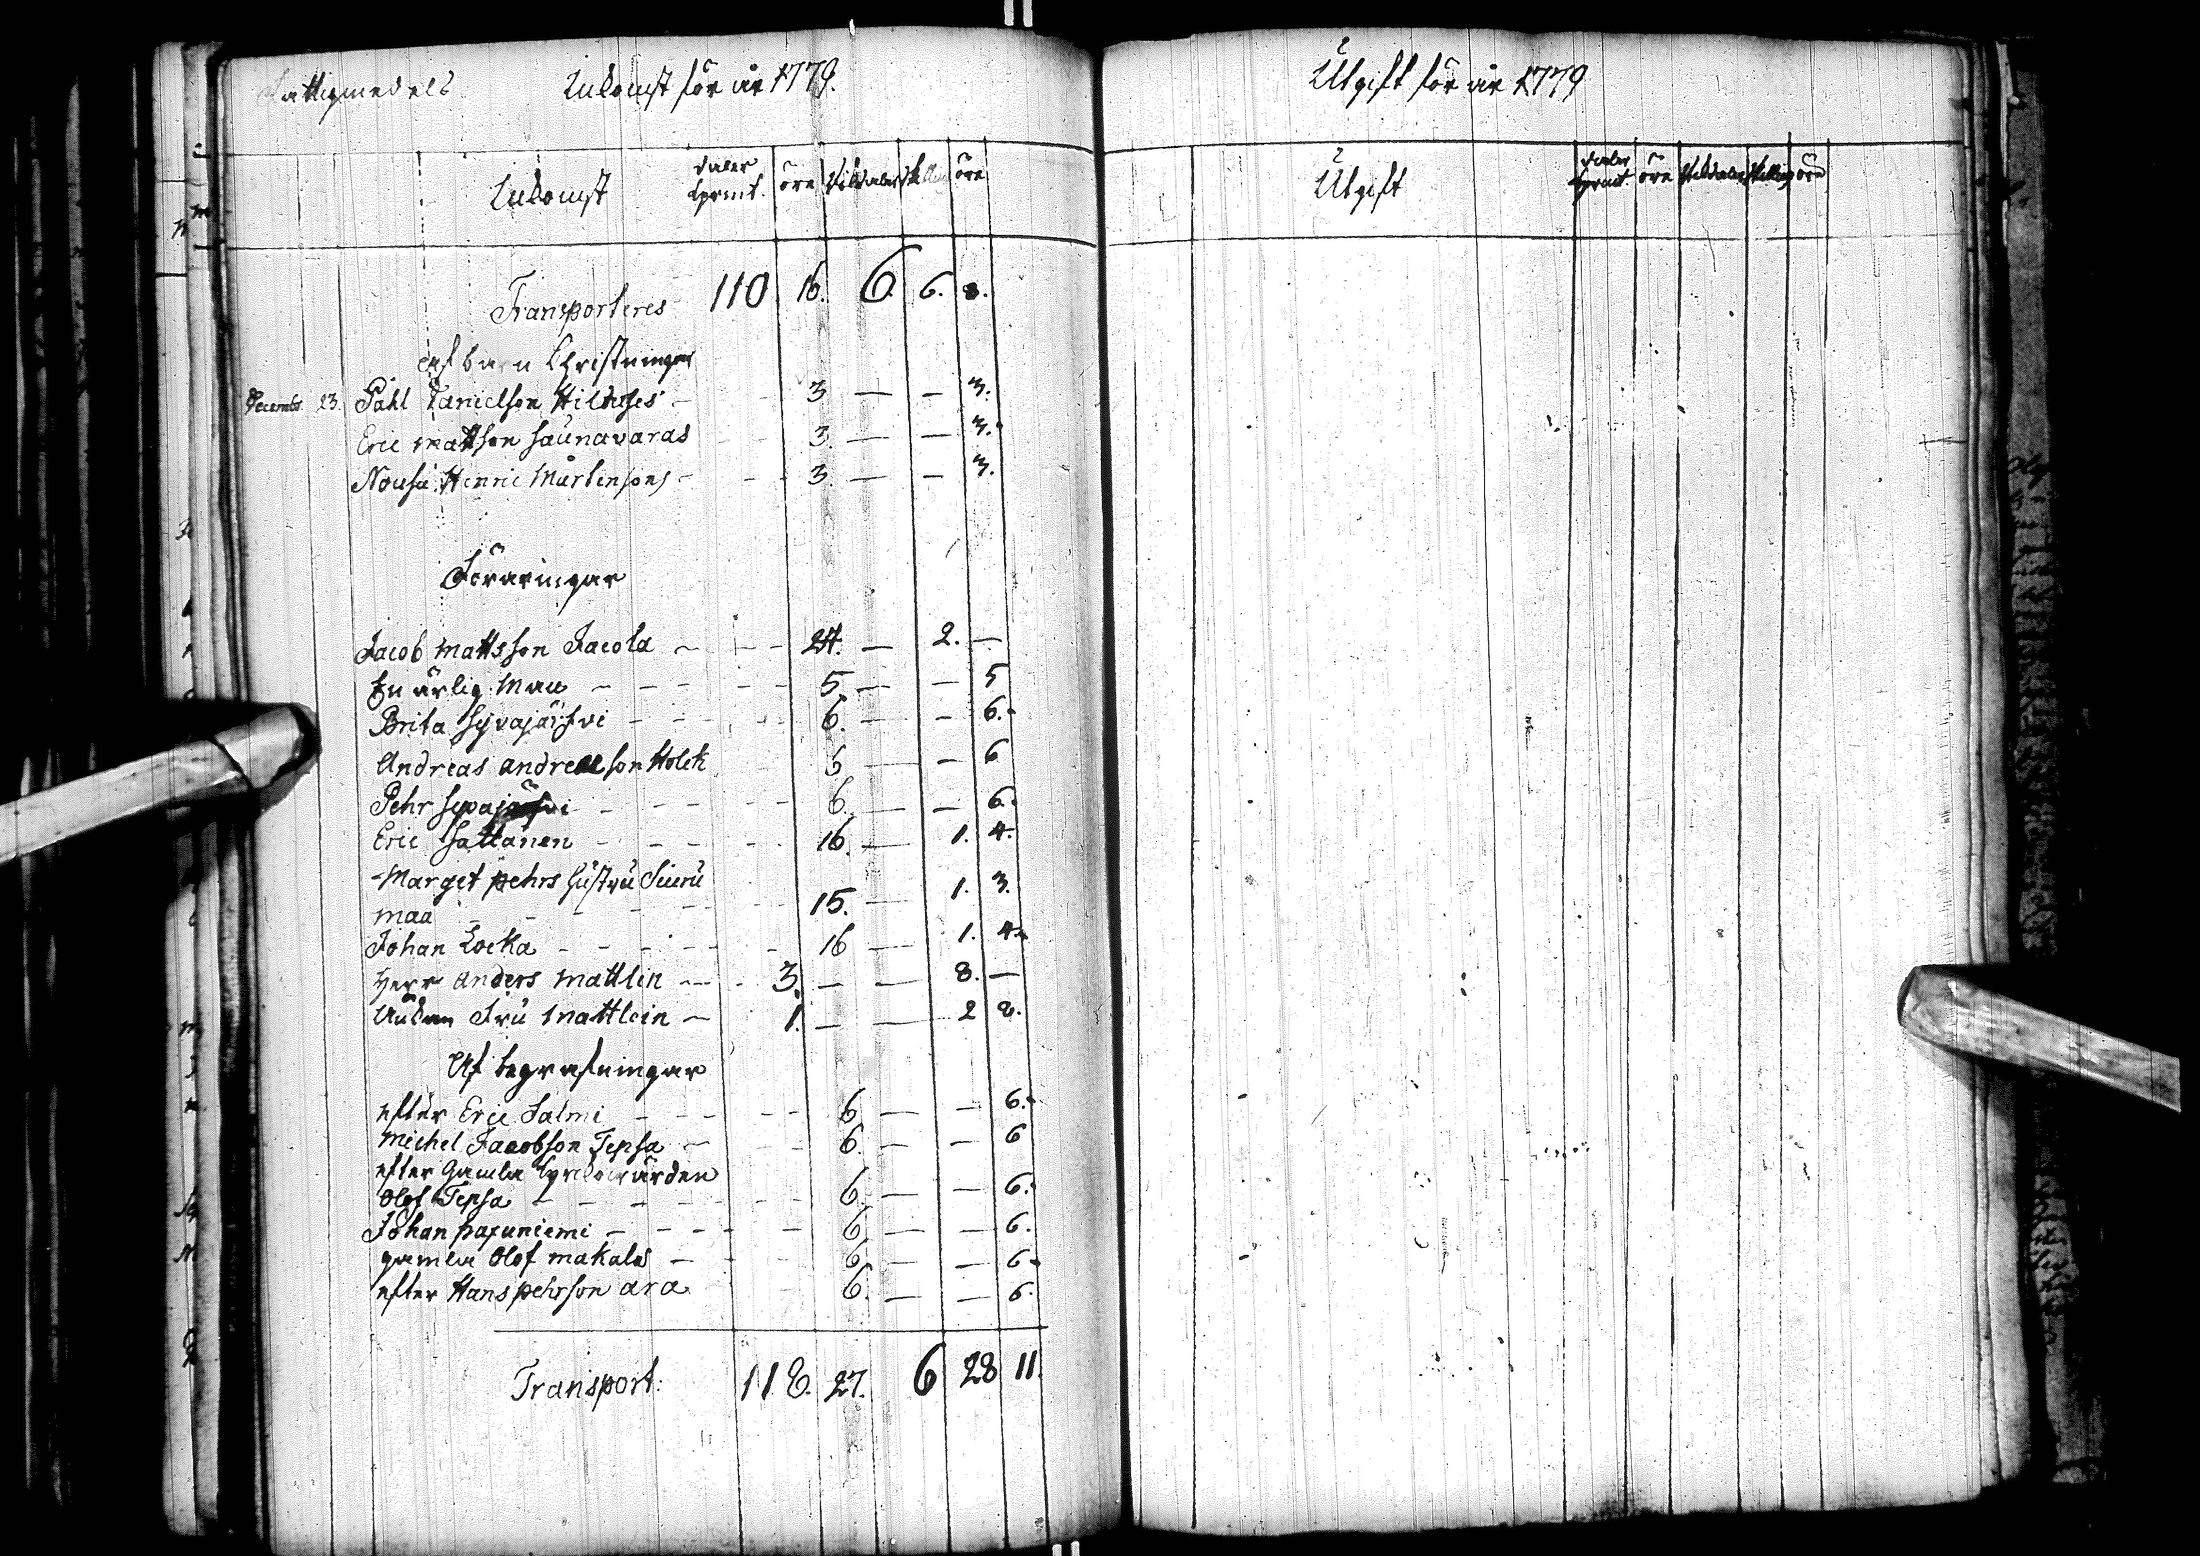 Fattigmedels Inkomst för år 1779.
Inkomst daler kprmt. öre Riksdaler skelling öre
Transporteres 110 16. 6. 6. 8.
af barn Christningar
Decembr. 23. Påhl Danielson - 3 — — 3.
Eric mattson Saunavaras - - 3. — — 3.
Nousu Henric Mårtensons - - - 3. — — 3.
Föräringar
Jacob mattsson Jacola - - - 24. — 2. —
En ärlig Man - - - - - 5. — — 5
Brita Syväjärfvi - - - - 6. — — 6.
Andreas andreason Holck 6 — — 6
Pehr Syväjärfvi - - - - - 6. — — 6.
Eric Sattanen - - - - - 16. — 1. 4.
Marget pehrs hustru Siuru
maa - - - - - - 15. — 1. 3.
Johan Locka - - - - - - 16 — 1. 4.
Herr Anders Mattlin - - - 3. — — 8. —
Fru Mattlein - 1. — — 2 8.
Af begrafningar
efter Eric Salmi - - - - - 6 — — 6.
Michel Jacobson Tepsa - - - 6. — — 6
efter Gamla kyrckovärden
Olof Tepsa - - - - - - 6. — — 6.
Johan paxuniemi - - - - - 6. — — 6.
gamla Olof makala - - - 6. — — 6.
efter Hans pehrson ara 6. — — 6.
Transport: 118. 27. 6 28 11.
Utgift för år 1779
Utgift daler kprmt. öre Riksdaler skelling öre